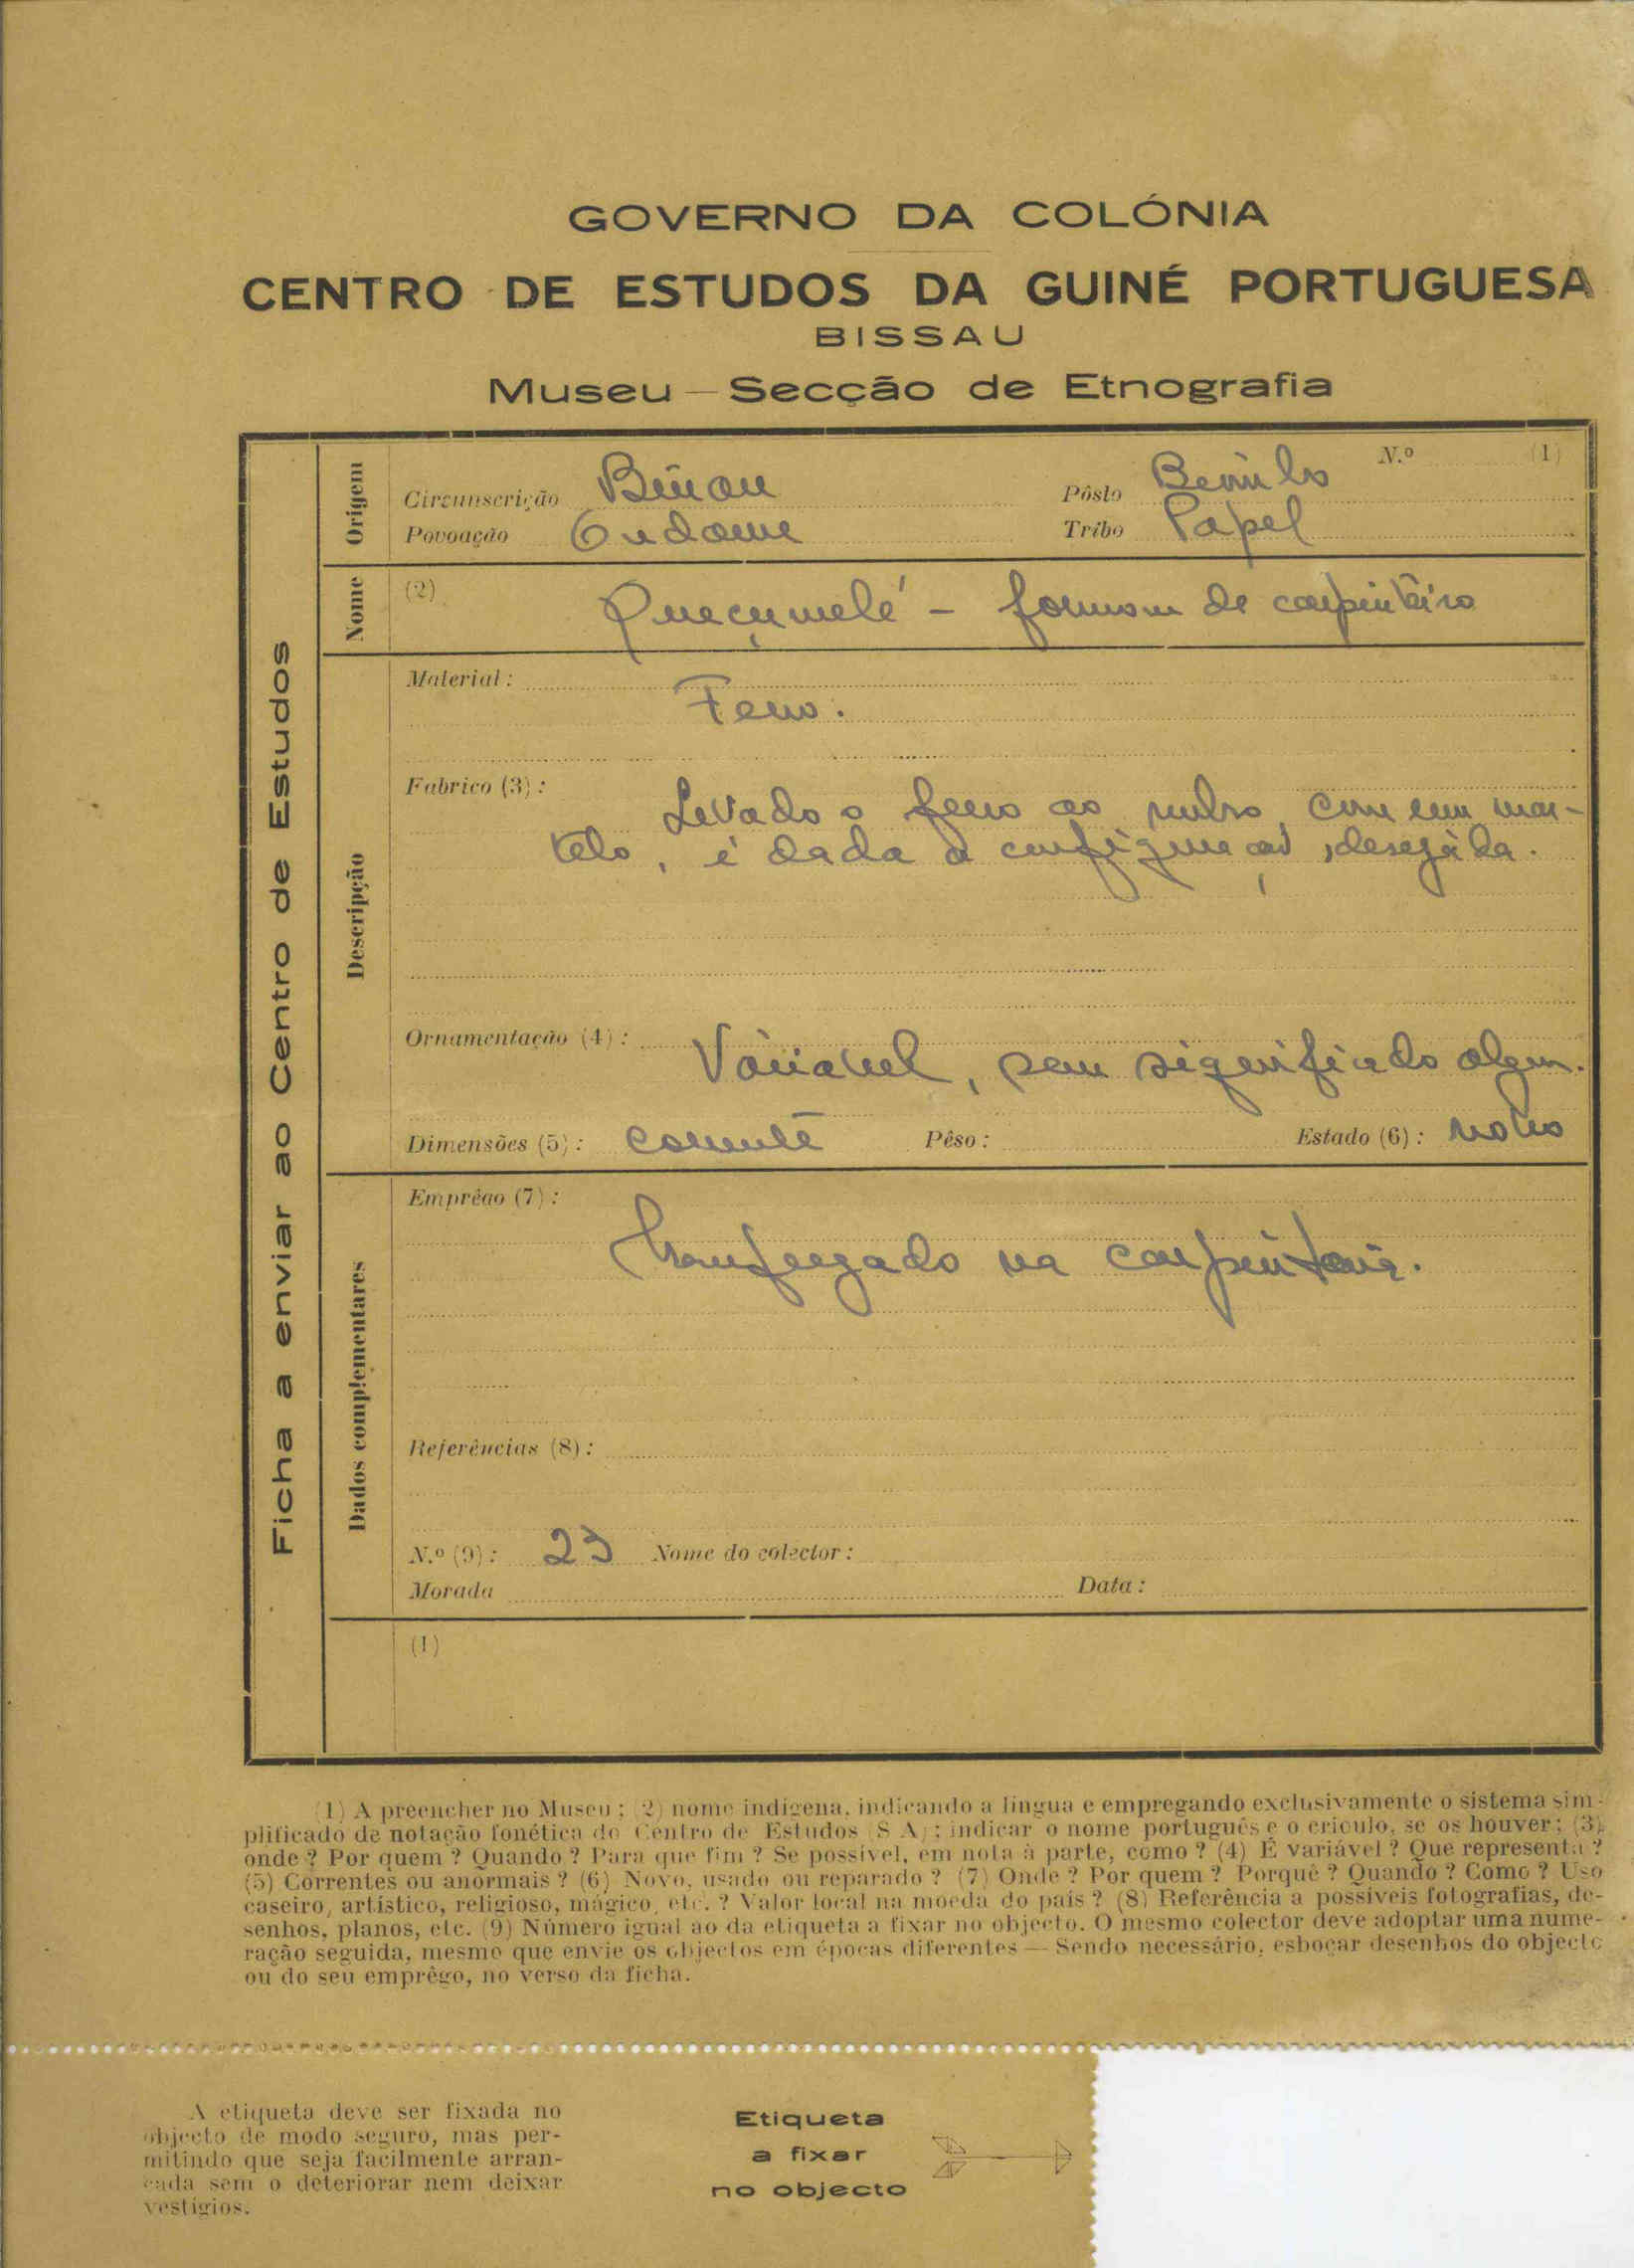 GOVERNO DA COLÓNIA
CENTRO DE ESTUDOS DA GUINÉ PORTUGUESA
BISSAU
Museu — Secção de Etnografia
Ficha a enviar ao Centro de Estudos
Origem
Circunscrição Bissau Pôsto N.º (1)
Povoação Tribo Papel
Nome
(2) Queçumelé - formom de carpinteiro
Descripção
Material:
Ferro.
Fabrico (3):
Levado o ferro ao rubro, com um mar-
telo, é dada a configuração desejada.
Ornamentação (4):
Variavel, sem significado algum.
Dimensões (5): corrente Pêso: Estado (6): novo
Dados complementares
Emprêgo (7):
na carpintaria.
Referências (8):
N.º (9): 23 Nome do colector:
Morada Data:
(1)
(1) A preencher no Museu; (2) nome indígena, indicando a língua e empregando exclusivamente o sistema sim-
plificado de notação fonética do Centro de Estudos (S A); indicar o nome português e o crioulo, se os houver; (3)
onde? Por quem? Quando? Para que fim? Se possível, em nota à parte, como? (4) É variável? Que representa?
(5) Correntes ou anormais? (6) Novo, usado ou reparado? (7) Onde? Por quem? Porquê? Quando? Como? Uso
caseiro, artístico, religioso, mágico, etc.? Valor local na moeda do país? (8) Referência a possíveis fotografias, de-
senhos, planos, etc. (9) Número igual ao da etiqueta a fixar no objecto. O mesmo colector deve adoptar uma nume-
ração seguida, mesmo que envie os objectos em épocas diferentes — Sendo necessário, esboçar desenhos do objecto
ou do seu emprêgo, no verso da ficha.
A etiqueta deve ser fixada no
objecto de modo seguro, mas per-
mitindo que seja facilmente arran-
cada sem o deteriorar nem deixar
vestígios.
Etiqueta
a fixar
no objecto